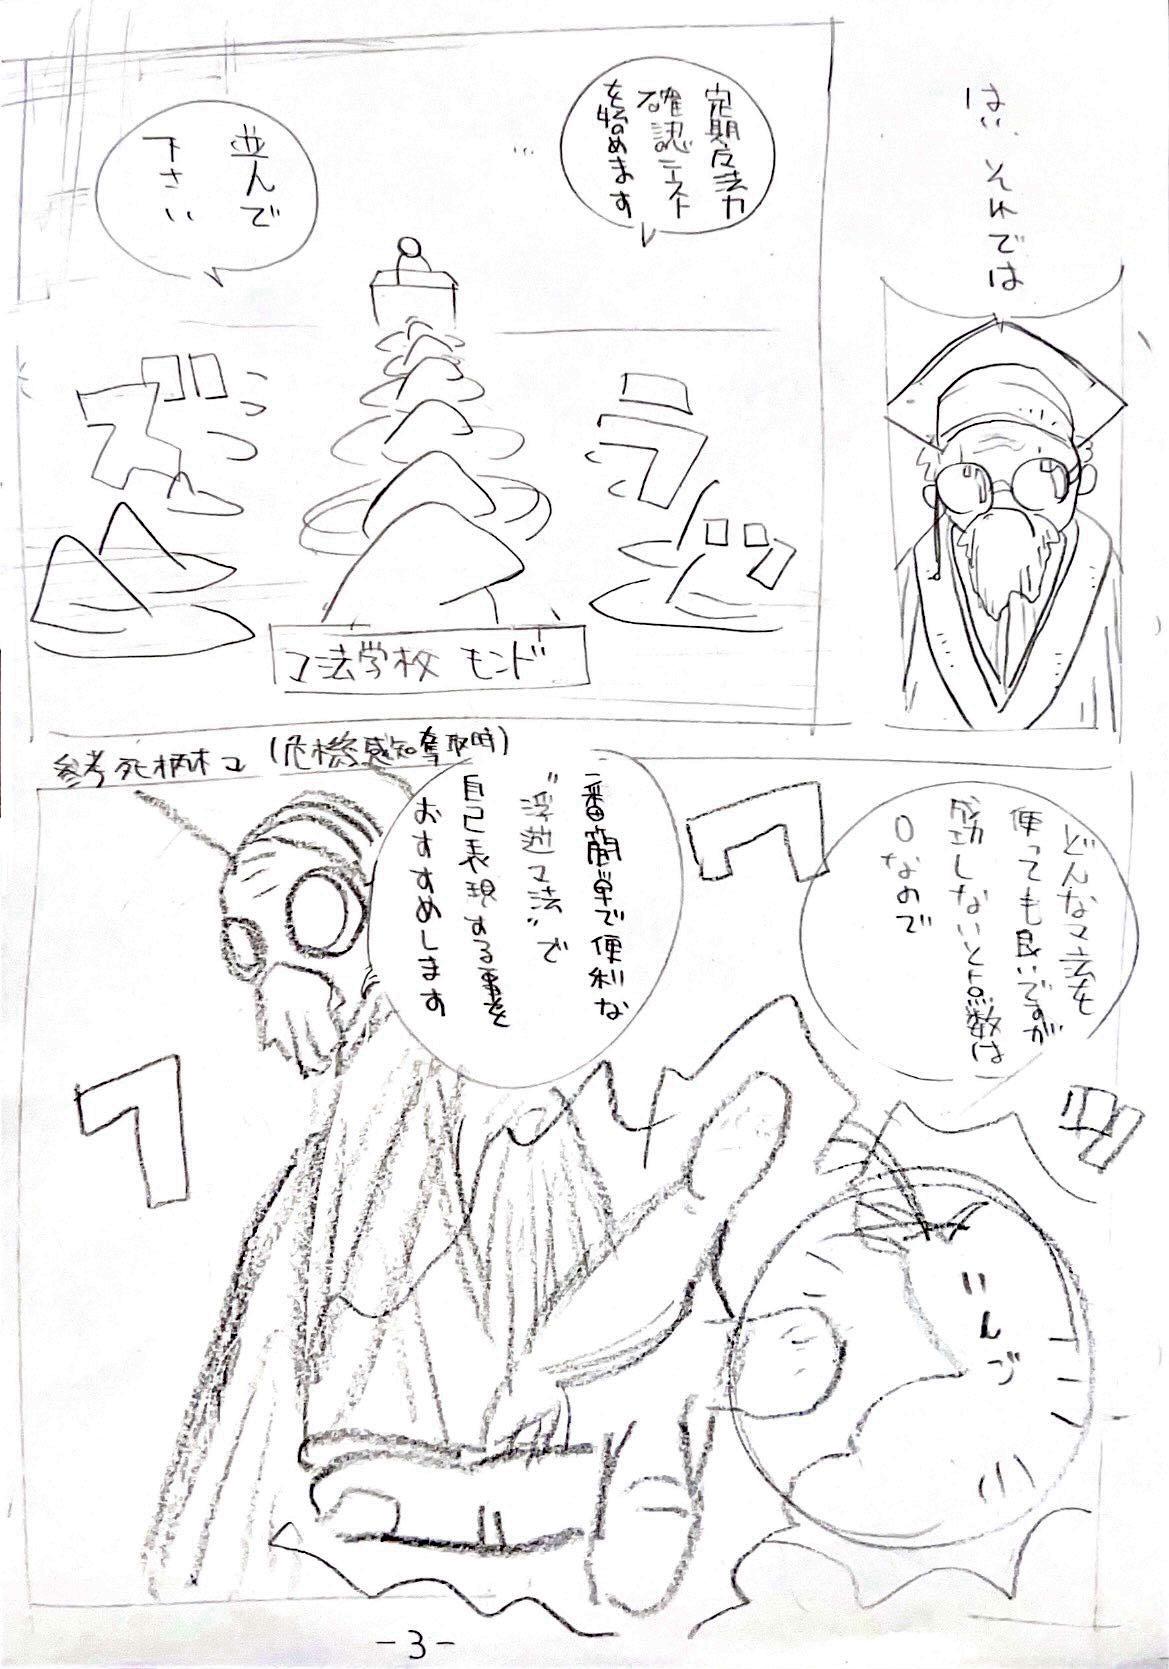 はい、それでは
定期マ法力
確認テスト
を始めます
並んで
下さい
ズ
ラッ
マ法学校 モンド
参考死柄木コマ(危機感知奪取時)
どんなマ法を
使っても良いですが
成功しないと点数は
0なので
一番簡単で便利な
“浮遊マ法”で
自己表現する事を
おすすめします
りんご
-3-